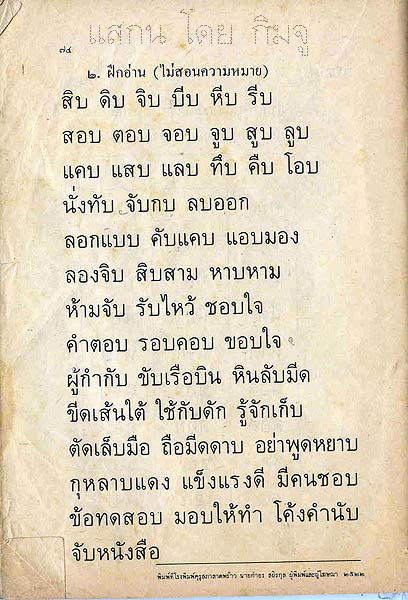 แสกน โดย กิมจู
๗๔
๒. ฝึกอ่าน (ไม่สอนความหมาย)
สิบ ดิบ จิบ บีบ หีบ รีบ
สอบ ตอบ จอบ จูบ สูบ ลูบ
แคบ แสบ แลบ ทึบ คืบ โอบ
นั่งทับ จับกบ ลบออก
ลอกแบบ คับแคบ แอบมอง
ลองจิบ สิบสาม หาบหาม
ห้ามจับ รับไหว้ ชอบใจ
คำตอบ รอบคอบ ขอบใจ
ผู้กำกับ ขับเรือบิน หินลับมีด
ขีดเส้นใต้ ใช้กับดัก รู้จักเก็บ
ตัดเล็บมือ ถือมีดดาบ อย่าพูดหยาบ
กุหลาบแดง แข็งแรงดี มีคนชอบ
ข้อทดสอบ มอบให้ทำ โค้งคำนับ
จับหนังสือ
พิมพ์ที่โรงพิมพ์คุรุสภาลาดพร้าว นายกำธร สถิรกุล ผู้พิมพ์และผู้โฆษณา ๒๕๒๒